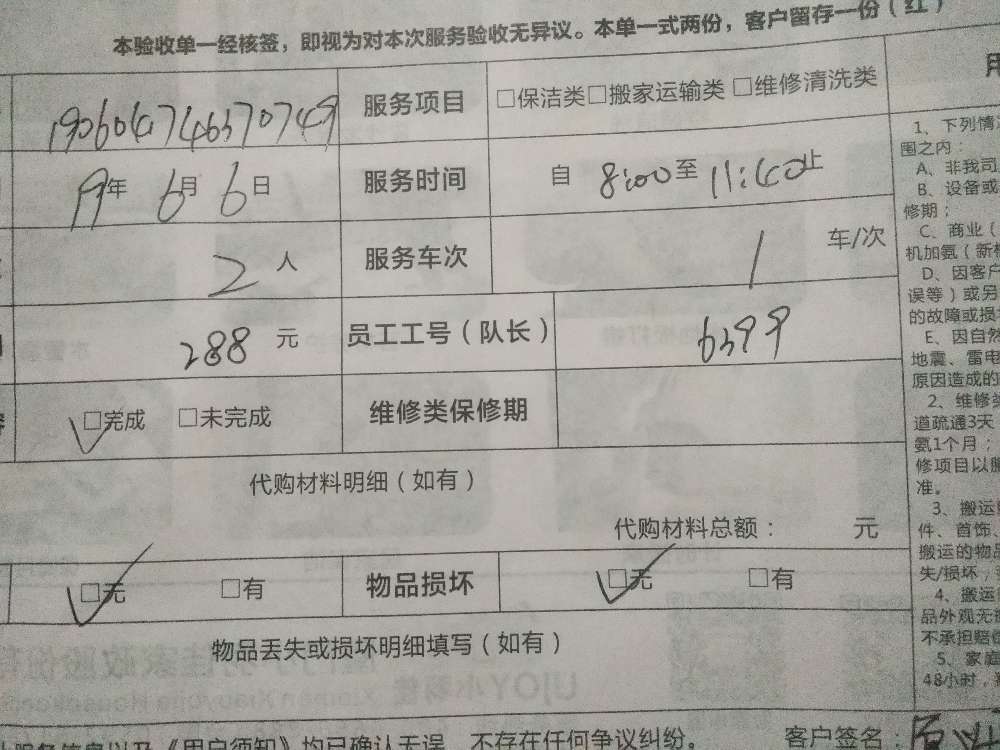 本验收单一经核签，即视为对本次服务验收无异议。本单一式两份，客户留存一份（红）
1906041746370749 服务项目 □保洁类□搬家运输类 □维修清洗类
19年 6月 6日 服务时间 自 8:00 至 11:40 止
2 人 服务车次 1 车/次
288 元 员工工号（队长） 6399
□完成 □未完成 维修类保修期
代购材料明细（如有）
代购材料总额： 元
□无 □有 物品损坏 □无 □有
物品丢失或损坏明细填写（如有）
均已确认无误，不存在任何争议纠纷。 客户签名：
用
1、下列情
围之内：
A、非我司
B、设备或
修期；
C、商业（
机加氨（新
D、因客户
误等）或另
的故障或损
E、因自然
地震、雷电
原因造成的
2、维修类
道疏通3天
氨1个月；
修项目以服
准。
3、搬运
件、首饰、
搬运的物品
失/损坏，
4、搬运
品外观无
不承担赔偿
5、家庭
48小时，